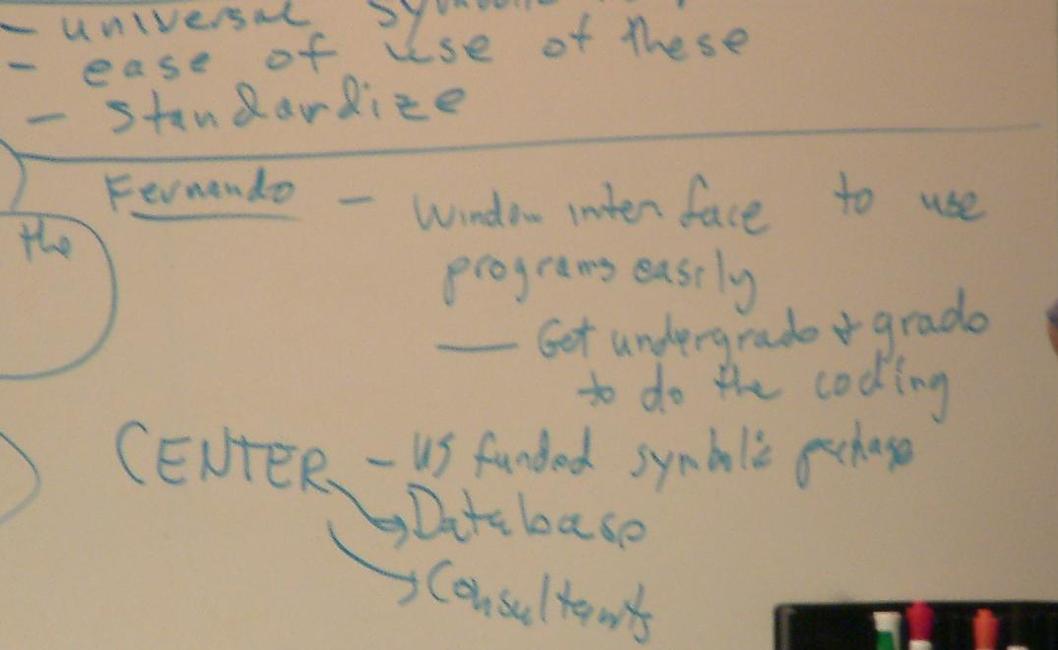 - universal
- ease of use of these
- Standardize
Fernando - Window interface to use
the
programs easily
- Get undergrads & grads
to do the coding
CENTER - US funded symbolic package
Database
Consultants